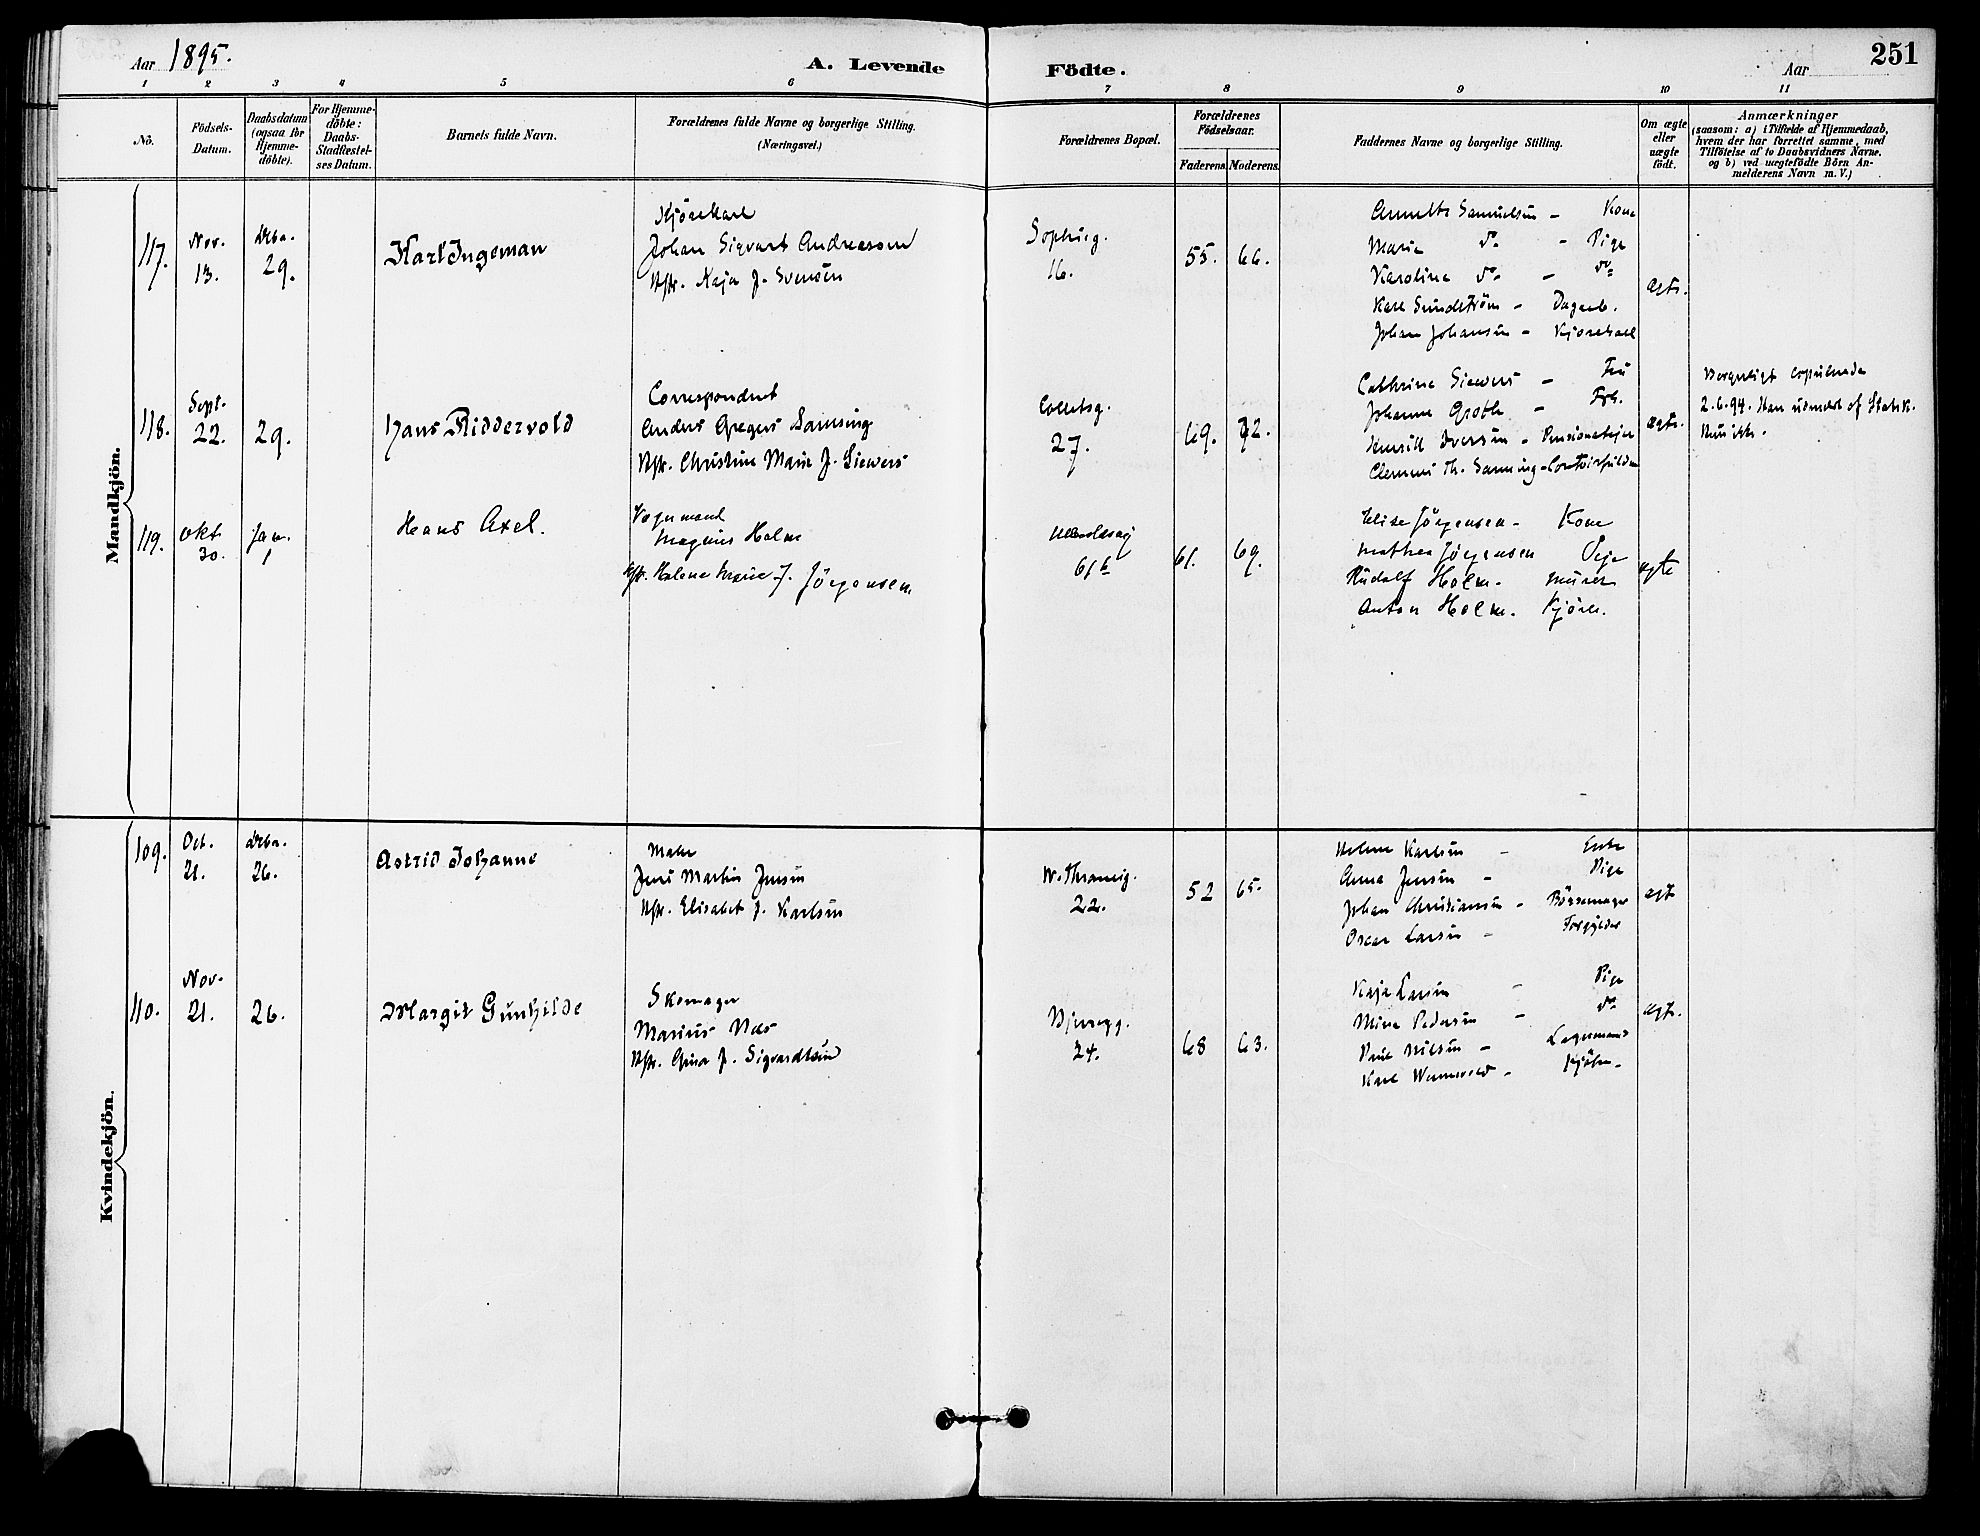 Aar 1895.
A. Levende Födte.
Aar
251
1 2 3 4 5 6 7 8 9 10 11
No.
Födsels-
Datum.
Daabsdatum
(ogsaa for
Hjemme-
döbte).
For Hjemme-
döbte:
Daabs-
Stadfæstel-
ses Datum.
Barnets fulde Navn.
Forældrenes fulde Navne og borgerlige Stilling.
(Næringsvei.)
Forældrenes Bopæl.
Forældrenes
Födselsaar.
Faderens. Moderens.
Faddernes Navne og borgerlige Stilling.
Om ægte
eller
uægte
födt.
Anmærkninger
(saasom: a) i Tilfælde af Hjemmedaab,
hvem der har forrettet samme, med
Tilföielse af to Daabsvidners Navne.
og b) ved uægtefödte Börn An-
melderens Navn m. V.)
Mandkjön.
117.
Nov.
13.
Dcbr.
29.
Karl Ingeman
Kjörekarl
Johan Sigvart Andreasen
Hstr. Kaja f. Svensen
Sophieg.
16.
55. 66.
Annette Samuelsen - Kone
Marie do - Pige
Karoline do - do
Karl Sundström - Dagarb.
Johan Johansen - Kjörekarl
ægte.
118.
Sept.
22.
29.
Hans Riddervold
Correspondent
Anders Gregers Samsing
Hstr. Christine Marie f. Siewers
Colletsg.
27.
69. 72.
Cathrine Siewers - Fru
Johanne Groth - Frk.
Iversen - Pensionateier
Clemens Th. Samsing -
ægte.
Borgerligt
2.6.94. Han udmeldt af Statsk.
Hun ikke.
119.
Okt
30.
Jan.
1
Hans Axel.
Vognmand
Magnus Holm
Hstr. Helene Marie f. Jörgensen
Ullevoldsvej
61 b
61. 69.
Elise Jörgensen - Kone
Mathea Jörgensen Pige
Rudolf Holm. Murer
Anton Holm. Kjörek.
ægte
Kvindekjön.
109.
Oct.
21.
Dcbr.
26.
Astrid Johanne
Maler
Jens Martin Jensen
Hstr. Elisabet f. Karlsen
W. Thranesg.
22.
52 65.
Helene Karlsen - Enke
Anna Jensen - Pige
Johan Christiansen - Börsemager
Oscar Larsen - Forgylder
ægt
110.
Nov.
21.
26.
Margit Gunhilde
Skomager
Marius Næs
Hstr. Gina f. Sigvardtsen
Bjeregg.
24.
68 63.
Kaja Larsen - Pige
Mina Pedersen - do
Paul Nilsen - Lagermand
Karl Wennevold -
ægte.